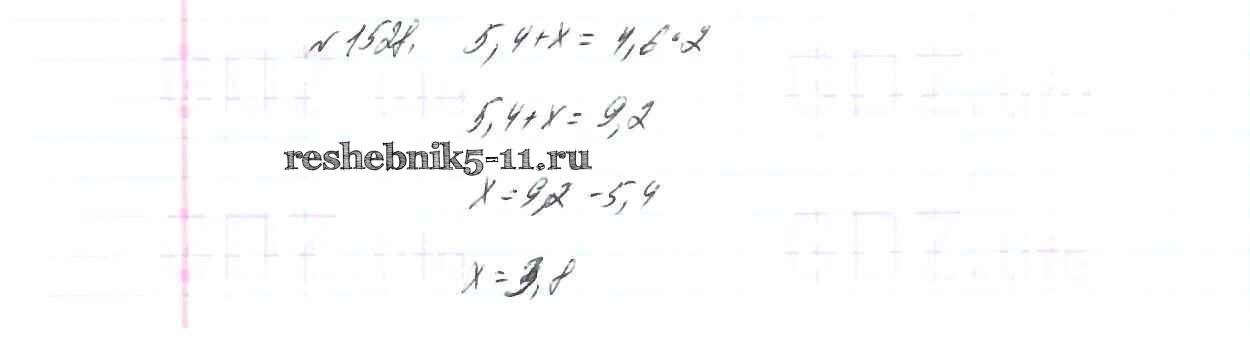 №1528. 5,4+x = 4,6·2
5,4+x = 9,2
reshebnik5-11.ru
x = 9,2 - 5,4
x = 3,8